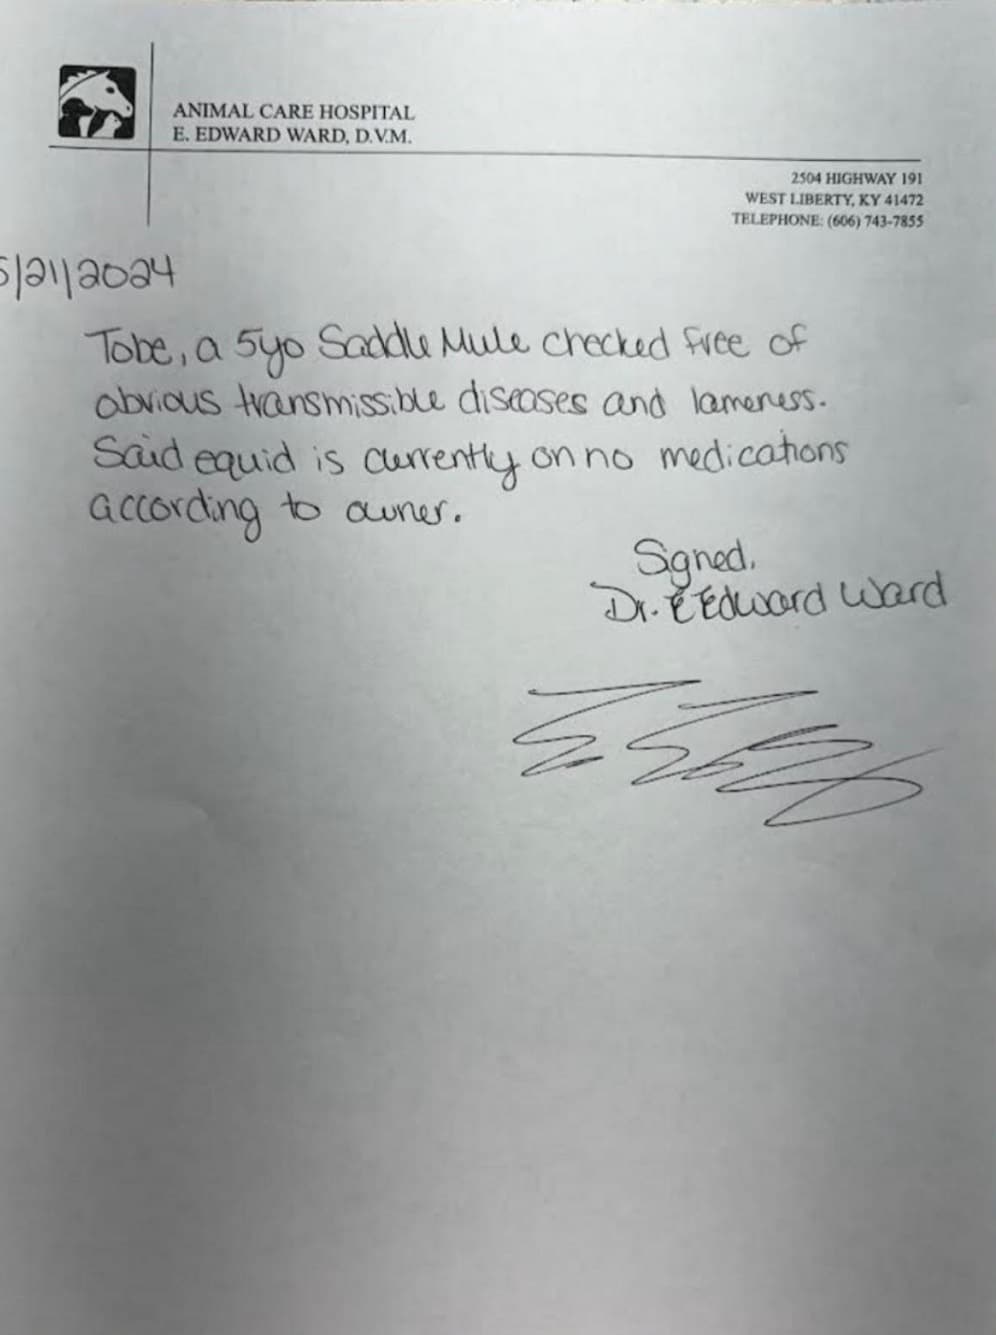 ANIMAL CARE HOSPITAL
E. EDWARD WARD, D.V.M.
2504 HIGHWAY 191
WEST LIBERTY, KY 41472
TELEPHONE: (606) 743-7855
5/21/2024
Tobe, a 5yo Saddle Mule checked free of
obvious transmissible diseases and lameness.
Said equid is currently on no medications
according to owner.
Signed,
Dr. E Edward Ward